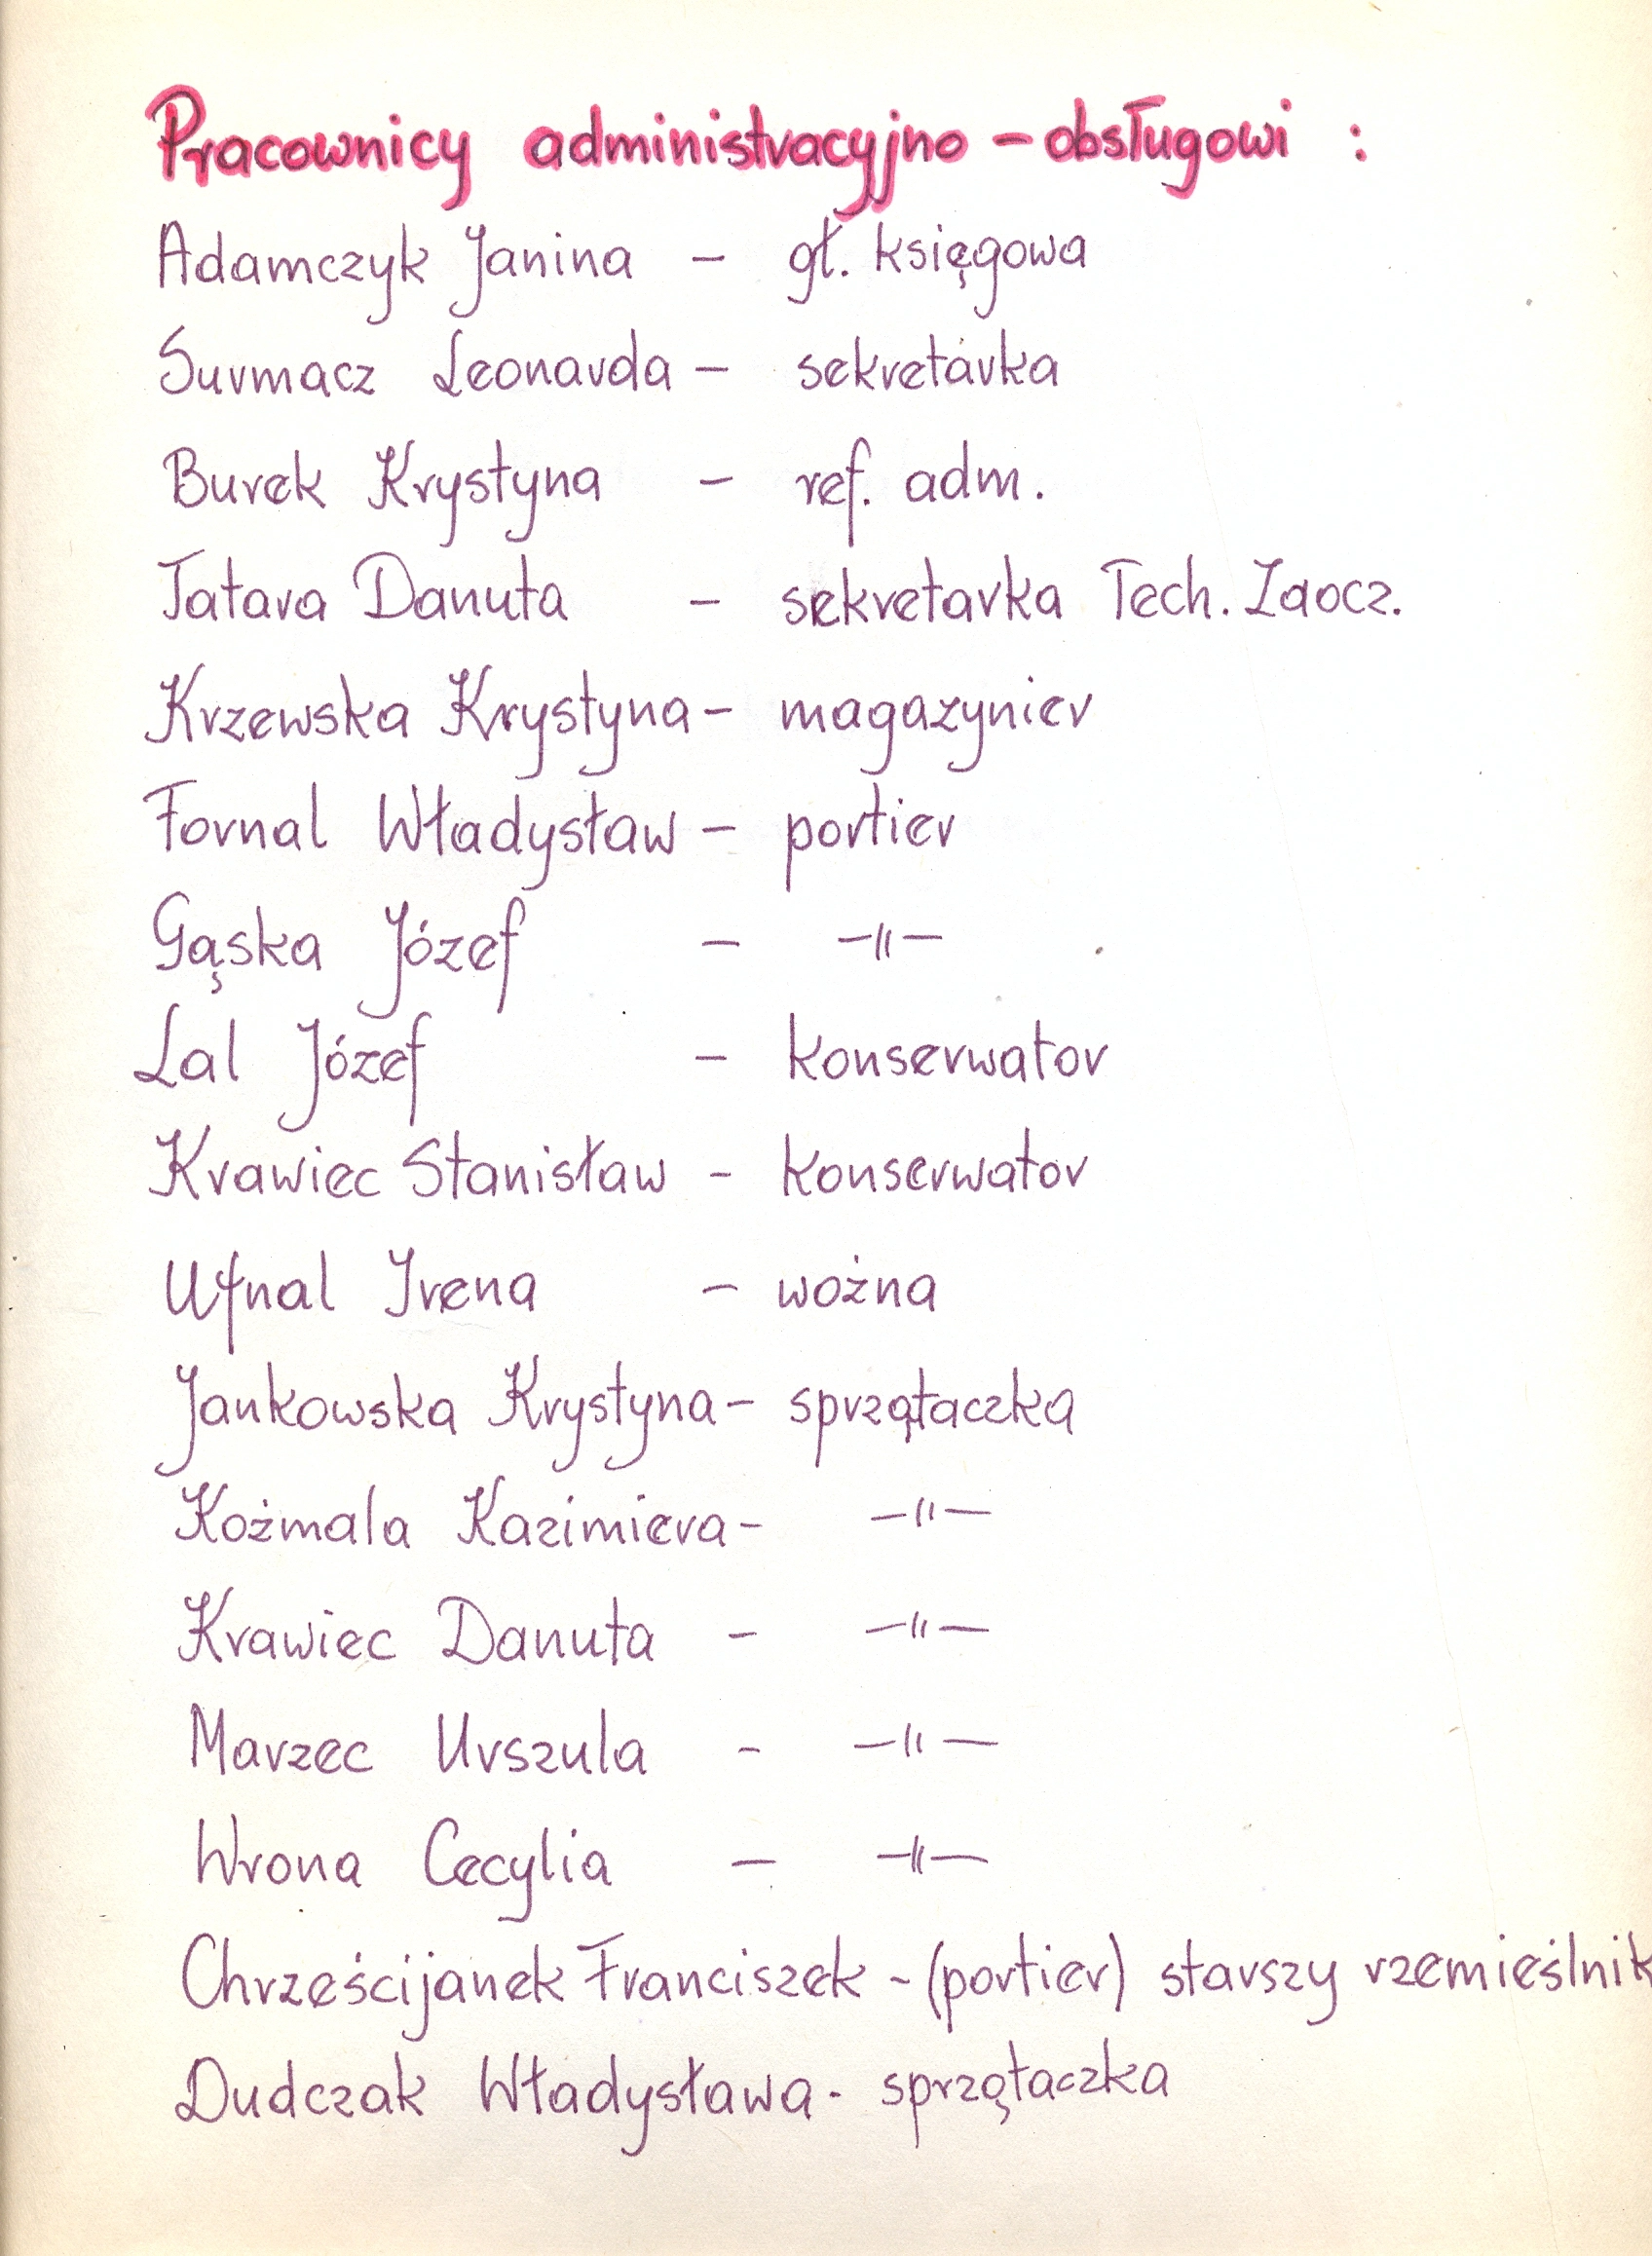 Pracownicy administracyjno - obsługowi :
Adamczyk Janina - gł. księgowa
Surmacz Leonarda - sekretarka
Burek Krystyna - ref. adm.
Tatara Danuta - sekretarka Tech. Zaocz.
Krzewska Krystyna - magazynier
Fornal Władysław - portier
Gąska Józef - -"-
Lal Józef - konserwator
Krawiec Stanisław - konserwator
Ufnal Irena - wożna
Jankowska Krystyna - sprzątaczka
Kożmala Kazimiera - -"-
Krawiec Danuta - -"-
Marzec Urszula - -"-
Wrona Cecylia - -"-
Chrześcijanek Franciszek - (portier) starszy rzemieślnik
Dudczak Władysława - sprzątaczka